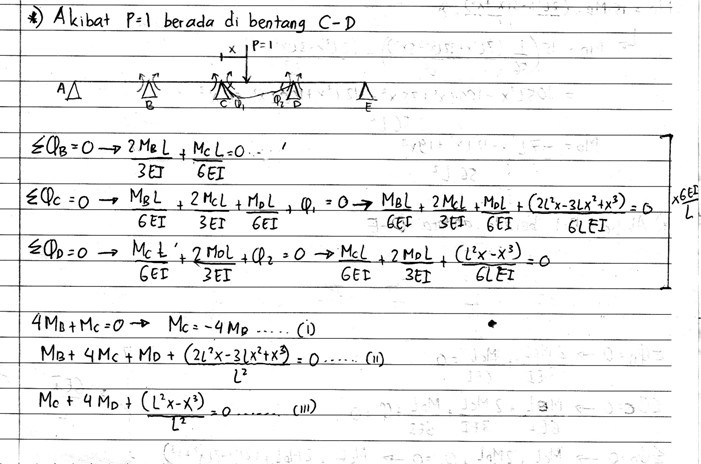 *) Akibat P=1 berada di bentang C-D
x P=1
A B C φ₁ φ₂ D E
ΣφB = 0 → 2MBL/3EI + MCL/6EI = 0 ...
ΣφC = 0 → MBL/6EI + 2MCL/3EI + MDL/6EI + φ₁ = 0 → MBL/6EI + 2MCL/3EI + MDL/6EI + (2L²x-3Lx²+x³)/6LEI = 0
x 6EI/L
ΣφD = 0 → MCL/6EI + 2MDL/3EI + φ₂ = 0 → MCL/6EI + 2MDL/3EI + (L²x-x³)/6LEI = 0
4MB + MC = 0 → MC = -4MB ..... (i)
MB + 4MC + MD + (2L²x-3Lx²+x³)/L² = 0 ...... (ii)
MC + 4MD + (L²x-x³)/L² = 0 ........ (iii)